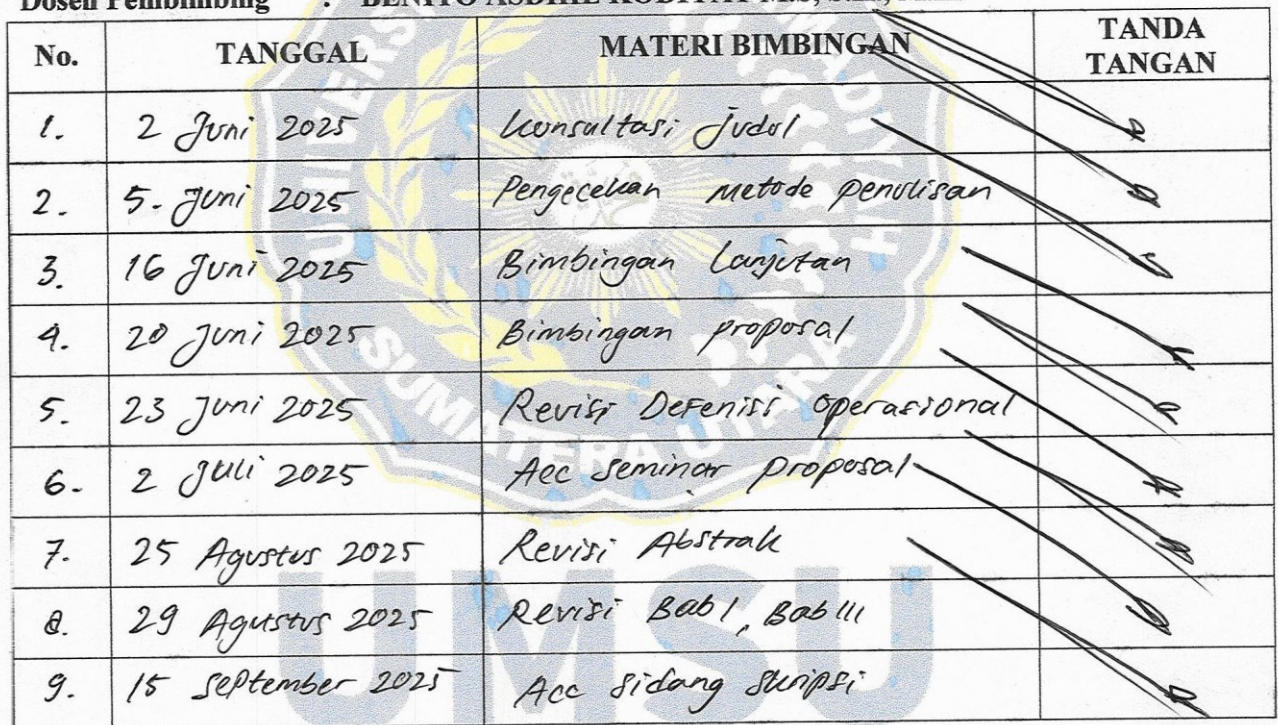 Dosen Pembimbing : BENITO ASDHIE KODIYAT MS, S.H., M.H
No. TANGGAL MATERI BIMBINGAN TANDA TANGAN
1. 2 Juni 2025 Konsultasi judul
2. 5. Juni 2025 Pengecekan metode penulisan
3. 16 Juni 2025 Bimbingan lanjutan
4. 20 Juni 2025 Bimbingan proposal
5. 23 Juni 2025 Revisi Defenisi operasional
6. 2 Juli 2025 Acc seminar proposal
7. 25 Agustus 2025 Revisi Abstrak
8. 29 Agustus 2025 Revisi Bab I, Bab III
9. 15 september 2025 Acc sidang skripsi
UNIVERS
MADIYAH
SUMATERA UTARA
UMSU